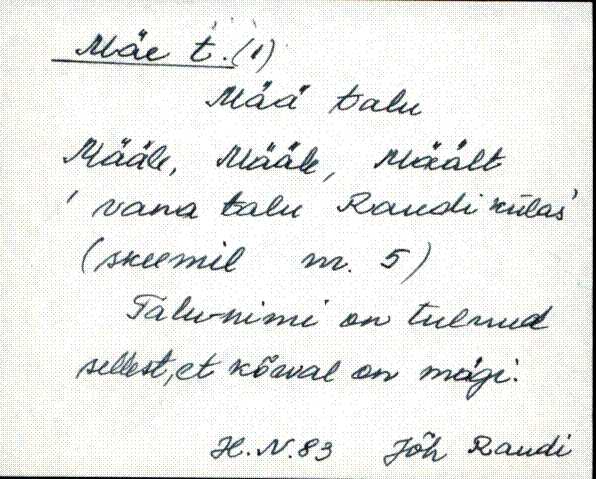 Mäe t. (1)
Mää talu
Määle, Määle, Mäält
'vana talu Raudi külas'
(skeemil nr. 5)
Talu-nimi on tulnud
sellest, et kõrval on mägi.
H.N.83 Jõh Raudi